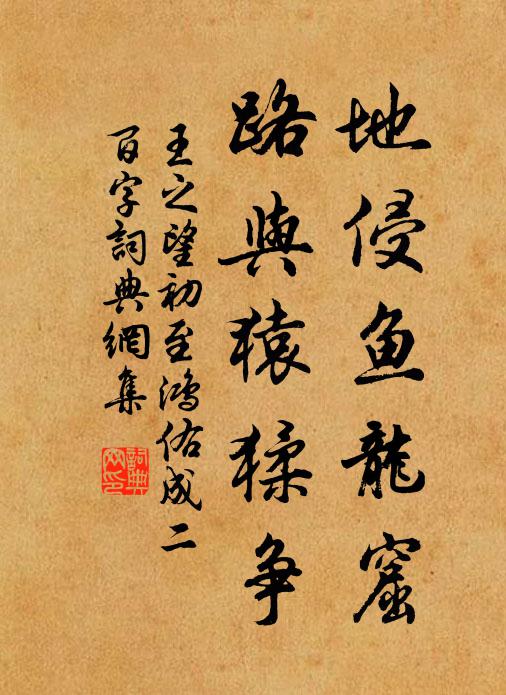 地侵鱼龍窟
路與猿猱争
王之望初至鴻佑成二
百字詞典網集
詞典网印